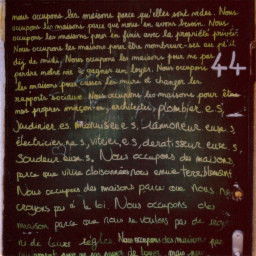 nous occupons les maisons parce qu'elles sont vides. Nous
occupons les maisons parce que nous en avons besoin. Nous
occupons les maisons pour en finir avec la propriété privée.
Nous occupons les maisons pour être nombreux-ses au p'tit
déj de midi. Nous occupons les maisons pour ne pas
perdre notre vie à gagner un loyer. Nous occupons
les maisons pour casser les murs et changer les
rapports sociaux. Nous occupons les maisons pour être
44
nos propres maçon-e-s, architectes, plombier.e.s,
jardinier.es menuisier.e.s, ramoneur.euse.s
électricien.ne.s, vitrier.e.s, dératiseur.euse.s
soudeur.euse.s, Nous occupons des maisons
parce que villes cloisonnées nous ennuie terriblement
Nous occupons des maisons parce que nous ne
croyons pas à la loi. Nous occupons des
maison parce que nous ne voulons pas de
ni de leurs règles. Nous occupons des maisons